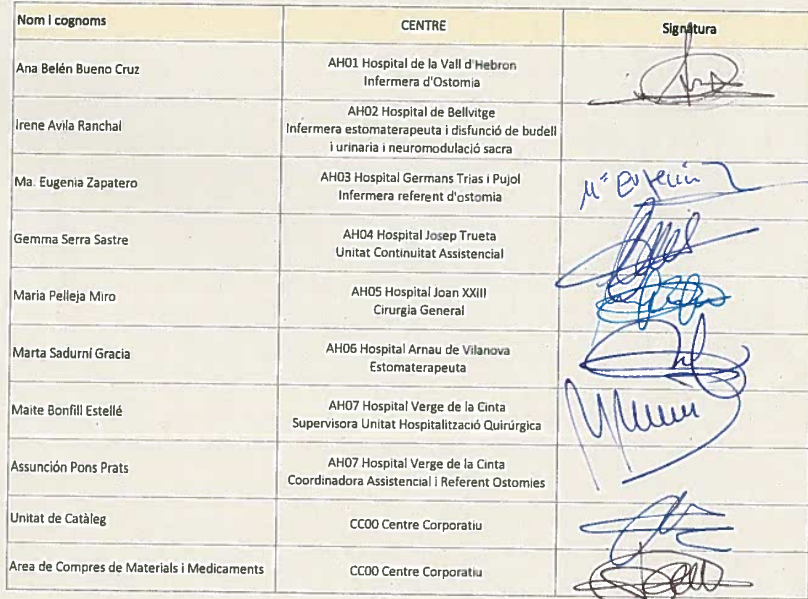 Nom i cognoms CENTRE Signatura
Ana Belén Bueno Cruz AH01 Hospital de la Vall d'Hebron
Infermera d'Ostomia
Irene Avila Ranchal AH02 Hospital de Bellvitge
Infermera estomaterapeuta i disfunció de budell
i urinaria i neuromodulació sacra
Ma. Eugenia Zapatero AH03 Hospital Germans Trias i Pujol
Infermera referent d'ostomia
Mª Eugenia
Gemma Serra Sastre AH04 Hospital Josep Trueta
Unitat Continuitat Assistencial
Maria Pelleja Miro AH05 Hospital Joan XXIII
Cirurgia General
Marta Sadurní Gracia AH06 Hospital Arnau de Vilanova
Estomaterapeuta
Maite Bonfill Estellé AH07 Hospital Verge de la Cinta
Supervisora Unitat Hospitalització Quirúrgica
Assunción Pons Prats AH07 Hospital Verge de la Cinta
Coordinadora Assistencial i Referent Ostomies
Unitat de Catàleg CC00 Centre Corporatiu
Area de Compres de Materials i Medicaments CC00 Centre Corporatiu